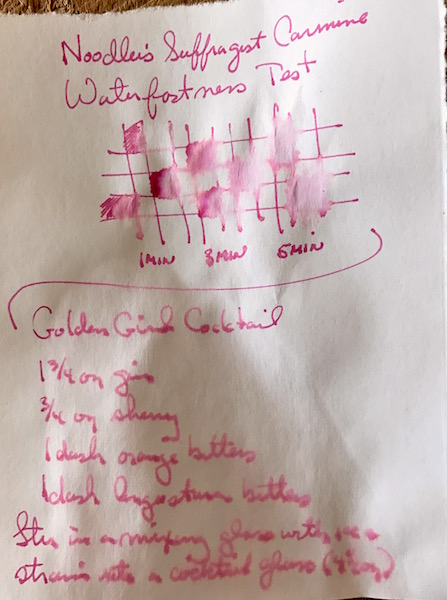 Noodler's Suffragist Carmine
Waterfastness Test
1 MIN 3 MIN 5 MIN
Golden Girl Cocktail
1 3/4 oz gin
3/4 oz sherry
1 dash orange bitters
1 dash angostura bitters
Stir in a mixing glass with ice
strain into a cocktail glass